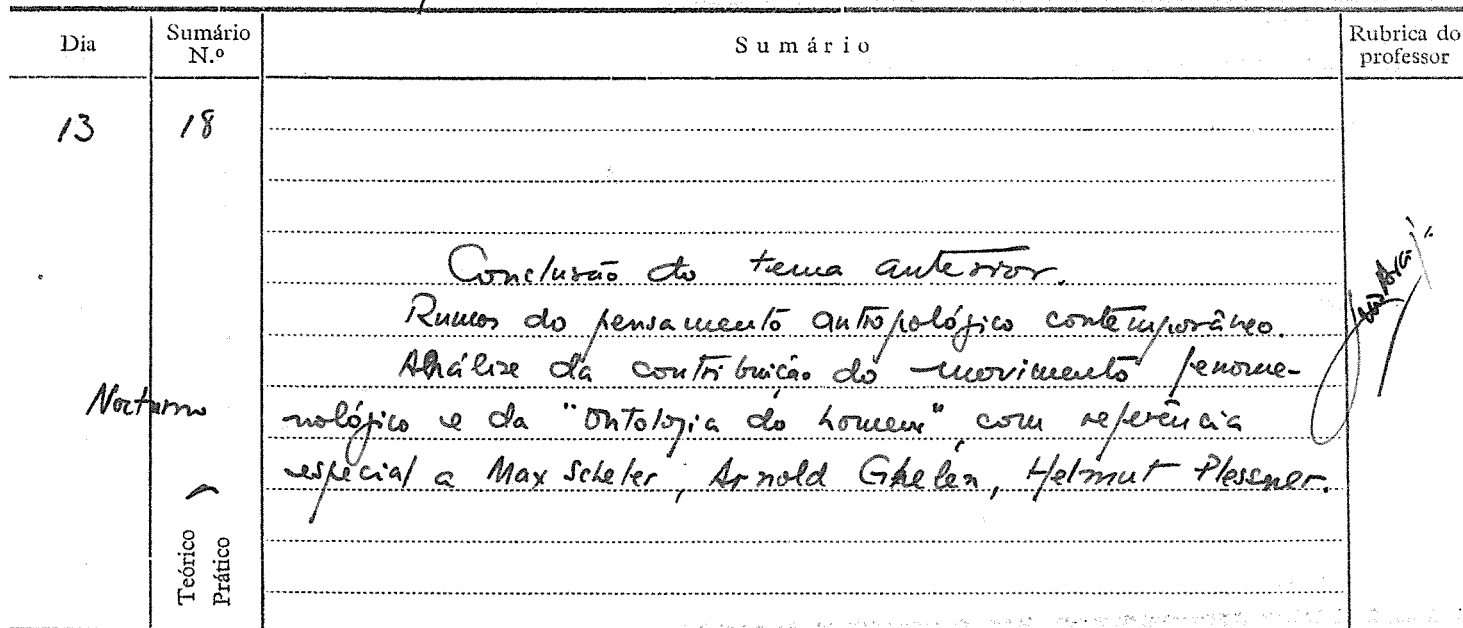 Dia
Sumário
N.º
Sumário
Rubrica do
professor
13
18
Conclusão do tema anterior.
Rumos do pensamento antropológico contemporâneo.
Análise da contribuição do movimento fenome-
nológico e da "Ontologia do homem", com referência
especial a Max Scheler, Arnold Ghelen, Helmut Plessner.
Nocturno
Teórico
Prático